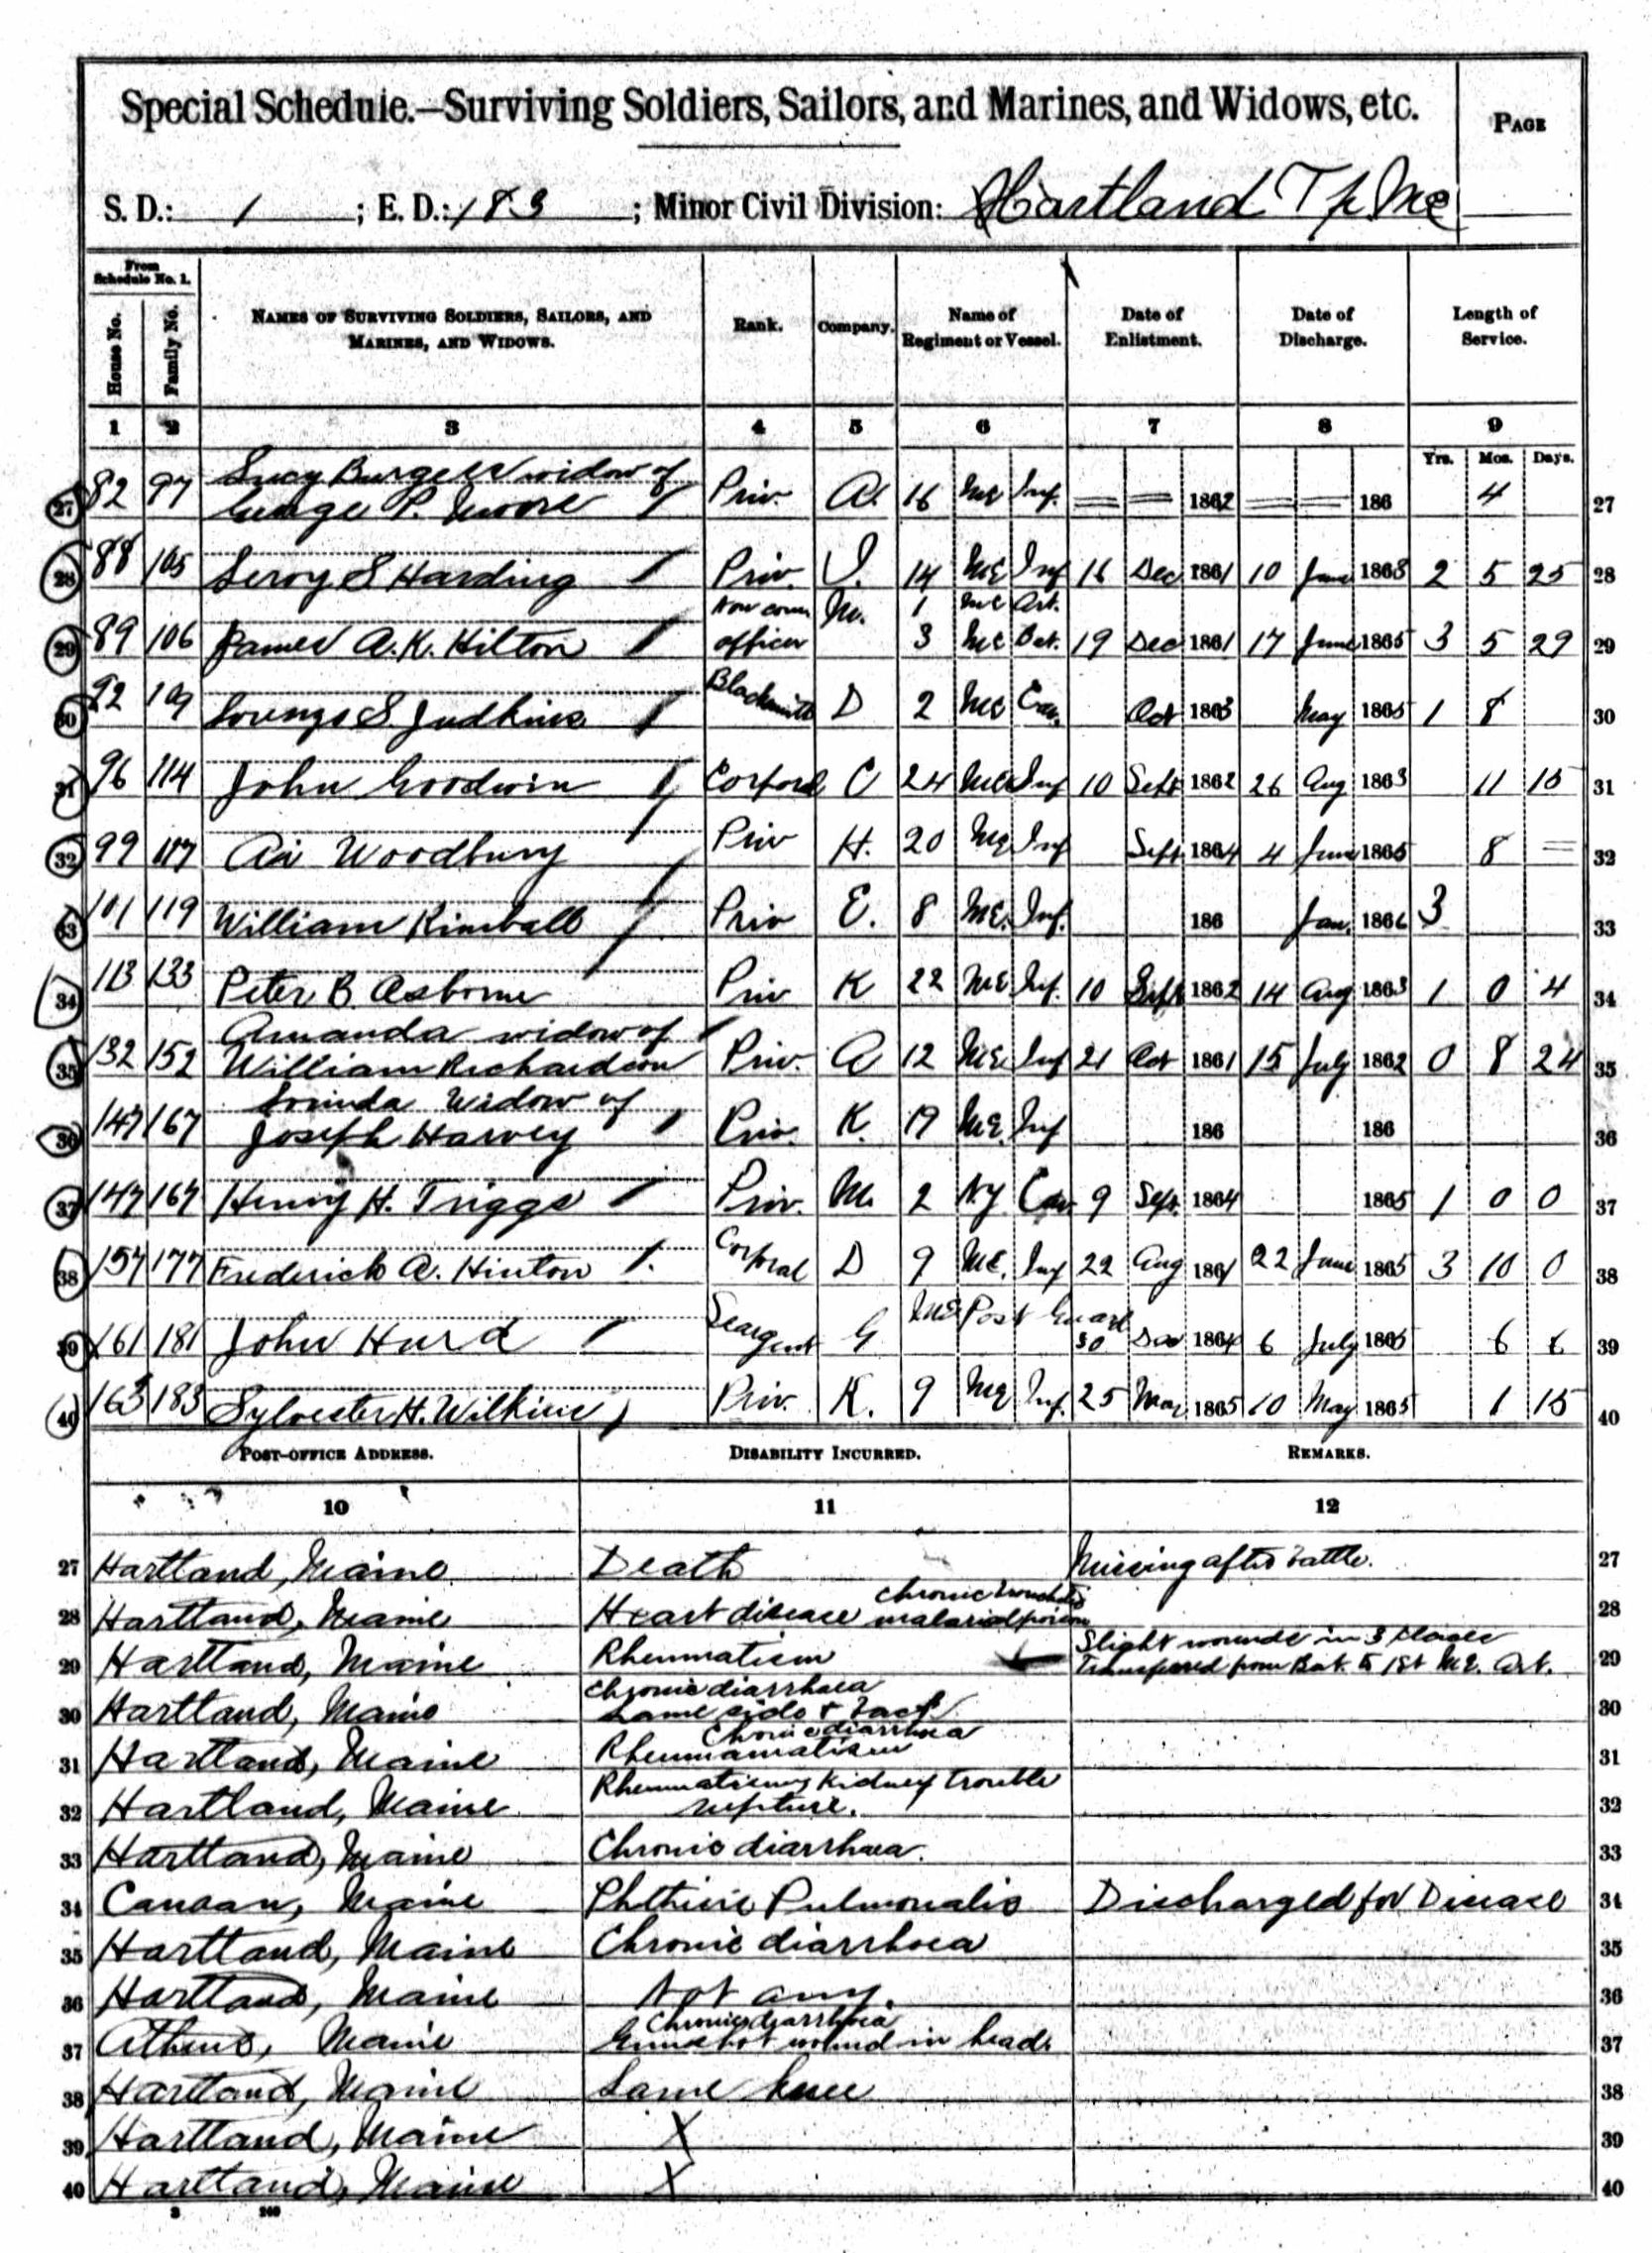 Special Schedule.—Surviving Soldiers, Sailors, and Marines, and Widows, etc.
PAGE
S. D.: 1 ; E. D.: 183 ; Minor Civil Division: Hartland Tp Me
From Schedule No. 1.
House No. Family No. NAMES OF SURVIVING SOLDIERS, SAILORS, AND MARINES, AND WIDOWS. Rank. Company. Name of Regiment or Vessel. Date of Enlistment. Date of Discharge. Length of Service.
1 2 3 4 5 6 7 8 9
Yrs. Mos. Days.
Lucy Burgess widow of
27 82 97 George P. Moore Priv. A. 16 Me Inf. = = 1862 = = 186 4 27
28 88 105 Leroy S Harding Priv. I. 14 ME Inf 16 Dec 1861 10 June 1863 2 5 25 28
Non com M. 1 Me Art.
29 89 106 James A. K. Hilton officer 3 Me Bat. 19 Dec 1861 17 June 1865 3 5 29 29
30 92 109 Lorenzo S. Judkins Blacksmith D 2 Me Cav. Oct 1863 May 1865 1 8 30
31 96 114 John Goodwin Corporal C 24 Me Inf 10 Sept 1862 26 Aug 1863 11 15 31
32 99 117 Ai Woodbury Priv H. 20 Me Inf Sept 1864 4 June 1865 8 = 32
33 101 119 William Kimball Priv E. 8 ME. Inf. 186 Jan. 186 3 33
34 113 133 Peter B Asborne Priv K 22 ME Inf. 10 Sept 1862 14 Aug 1863 1 0 4 34
Amanda widow of
35 132 152 William Richardson Priv. A 12 ME Inf 21 Oct 1861 15 July 1862 0 8 24 35
Lorinda Widow of
36 147 167 Joseph Harvey Priv. K. 19 ME. Inf 186 186 36
37 147 167 Henry H. Triggs Priv. M. 2 NY Cav. 9 Sept. 1864 1865 1 0 0 37
38 157 177 Frederick A. Hinton Corporal D 9 ME. Inf 22 Aug 1861 22 June 1865 3 10 0 38
39 161 181 John Hurd Seargent G ME Post Guard 30 Dec 1864 6 July 1865 6 6 39
40 163 183 Sylvester H. Wilkins Priv. K. 9 Me Inf. 25 Mar 1865 10 May 1865 1 15 40
POST-OFFICE ADDRESS. DISABILITY INCURRED. REMARKS.
10 11 12
27 Hartland, Maine Death Missing after battle. 27
28 Hartland, Maine Heart disease chronic bronchitis malarial poison 28
29 Hartland, Maine Rheumatism Slight wounds in 3 places 29
Transfered from Bat. to 1st ME. Art.
Chronic diarrhaea
30 Hartland, Maine Lame side & back 30
Chronic diarrhoea
31 Hartland, Maine Rheumamatism 31
Rheumatism, Kidney trouble
32 Hartland, Maine rupture. 32
33 Hartland, Maine Chronic diarrhaea. 33
34 Canaan, Maine Phthisis Pulmonalis Discharged for Disease 34
35 Hartland, Maine Chronic diarrhoea 35
36 Hartland, Maine Not any. 36
Chronic diarrhoea
37 Athens, Maine Gunshot wound in head. 37
38 Hartland, Maine Lame knee 38
39 Hartland, Maine X 39
40 Hartland, Maine X 40